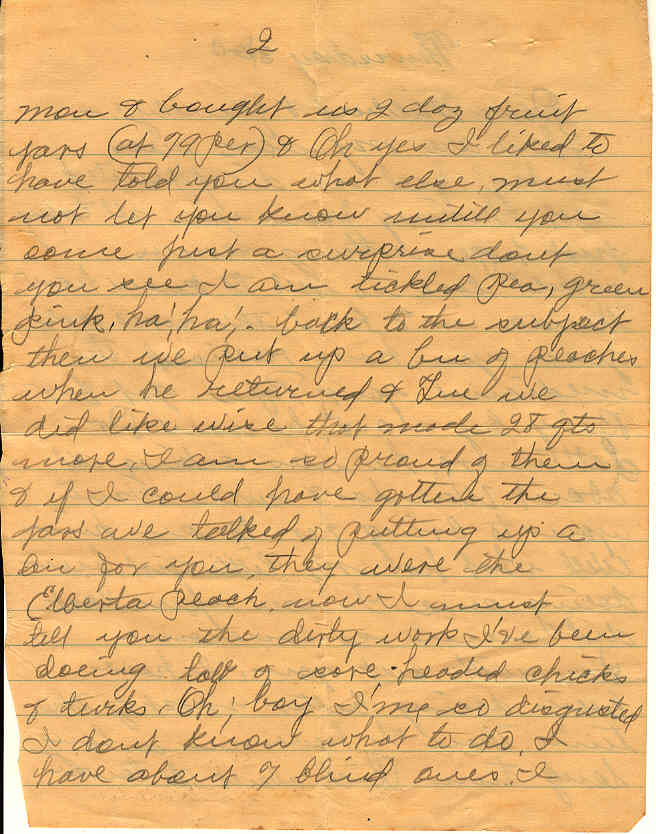 2
mon & bought us 2 doz fruit
jars (at 79 per) & Oh yes I liked to
have told you what else, must
not let you know untill you
come just a surprise dont
you see I am tickled pea, green
pink, ha! ha!. back to the subject
then we put up a bu of peaches
when he returned & Tue we
did like wise that made 28 qts
more, I am so proud of them
& if I could have gotten the
jars we talked of putting up a
bu for you, they were the
Elberta Peach, now I must
tell you the dirty work I've been
doeing of sore-headed chicks
& turks. Oh! boy I'me so disgusted
I dont know what to do. I
have about 7 blind ones. I